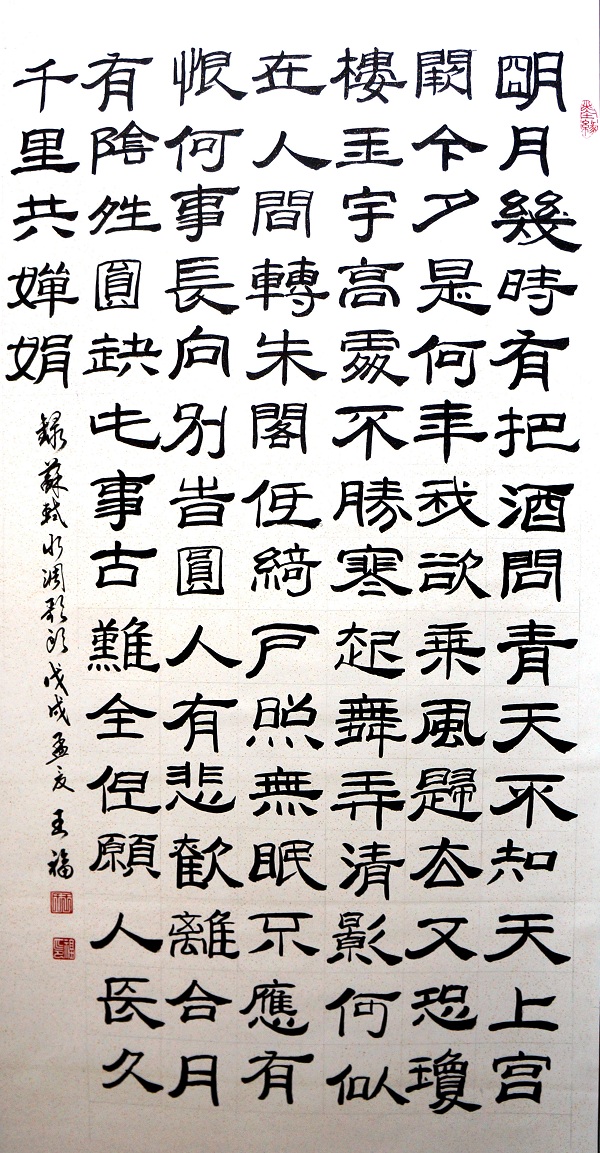 明月幾時有把酒問青天不知天上宫
闕今夕是何年我欲乘風歸去又恐瓊
樓玉宇高處不勝寒起舞弄清影何似
在人間轉朱閣低綺戶照無眠不應有
恨何事長向别旹圓人有悲歡離合月
有陰夝圓缺此事古難全但願人長久
千里共嬋娟
録蘇軾水調歌頭戊戌孟夏王福
墨緣